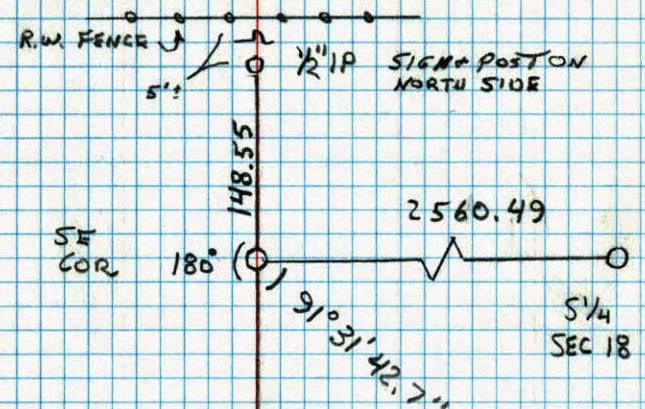 R.W. FENCE
5'±
1/2" IP
SIGN + POST ON
NORTH SIDE
148.55
2560.49
SE
COR
180°
91°31'42.7"
S 1/4
SEC 18